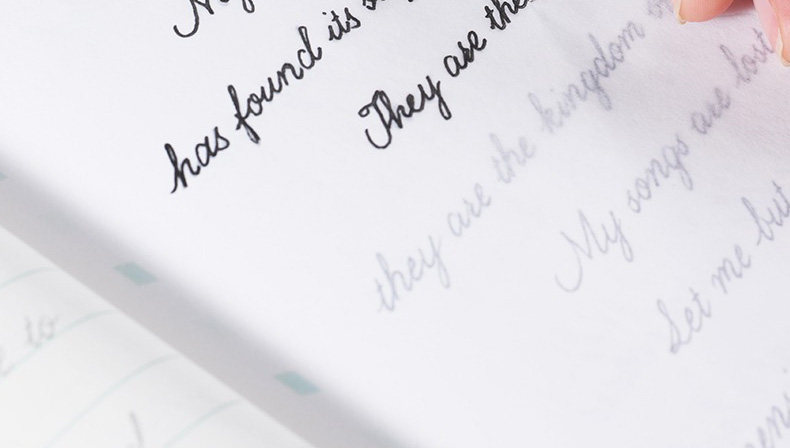 My
has found its
They are the
they are the kingdom
My songs are lost
Let me but
to